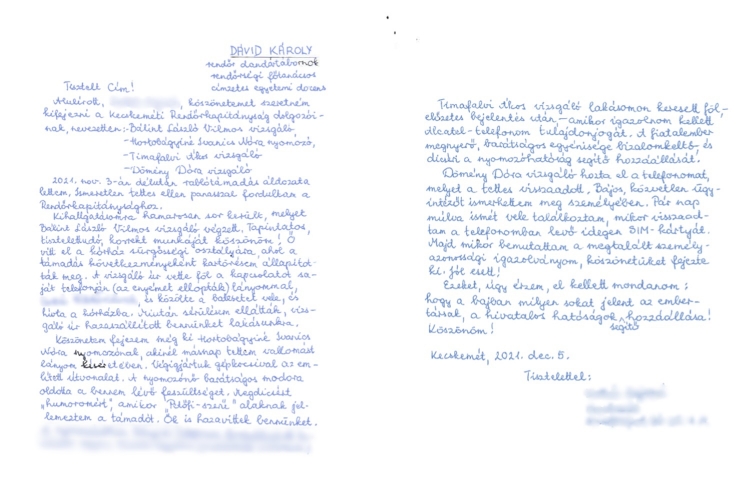 DÁVID KÁROLY
rendőr dandártábornok
rendőrségi főtanácsos
címzetes egyetemi docens
Tisztelt Cím!
Alulírott, köszönetemet szeretném
kifejezni a Kecskeméti Rendőrkapitányság dolgozói-
nak, nevezetten:-Bálint László Vilmos vizsgáló,
-Hortobágyiné Ivanics Nóra nyomozó,
-Timafalvi Ákos vizsgáló
-Dömény Dóra vizsgáló
2021. nov. 3-án délután rablótámadás áldozata
lettem. Ismeretlen tettes ellen panasszal fordultam a
Rendőrkapitánysághoz.
Kihallgatásomra hamarosan sor került, melyet
Bálint László Vilmos vizsgáló végzett. Tapintatos,
tisztelettudó, korrekt munkáját köszönöm! Ő
vitt el a kórház sürgősségi osztályára, ahol a
támadás következményeként kartörésem állapítot-
ták meg. A vizsgáló úr vette föl a kapcsolatot sa-
ját telefonján (az enyémet ellopták) lányommal,
és közölte a balesetet vele, és
hívta a kórházba. Miután sérülésem ellátták, vizs-
gáló úr hazaszállított bennünket lakásunkra.
Köszönetem fejezem még ki Hortobágyiné Ivanics
Nóra nyomozónak, akinél másnap tettem vallomást
lányom kíséretében. Végigjártuk gépkocsival az em-
lített útvonalat. A nyomozónő barátságos modora
oldotta a bennem lévő feszültséget. Megdicsért
"humoromért", amikor "Petőfi-szerű" alaknak jel-
lemeztem a támadót. Ők is hazavittek bennünket.
Timafalvi Ákos vizsgáló lakásomon keresett föl,
előzetes bejelentés után, - amikor igazolnom kellett
Alcatel-telefonom tulajdonjogát. A fiatalember
megnyerő, barátságos egyénisége bizalomkeltő, és
dicséri a nyomozóhatóság segítő hozzáállását.
Dömény Dóra vizsgáló hozta el a telefonomat,
melyet a tettes visszaadott. Bájos, közvetlen ügy-
intézőt ismerhettem meg személyében. Pár nap
múlva ismét vele találkoztam, mikor visszaad-
tam a telefonomban levő idegen SIM-kártyát.
Majd mikor bemutattam a megtalált személy-
azonossági igazolványom, köszönetüket fejezte
ki. Jól esett!
Ezeket, úgy érzem, el kellett mondanom:
hogy a bajban milyen sokat jelent az ember-
társak, a hivatalos hatóságok segítő hozzáállása!
Köszönöm!
Kecskemét, 2021. dec. 5.
Tisztelettel: